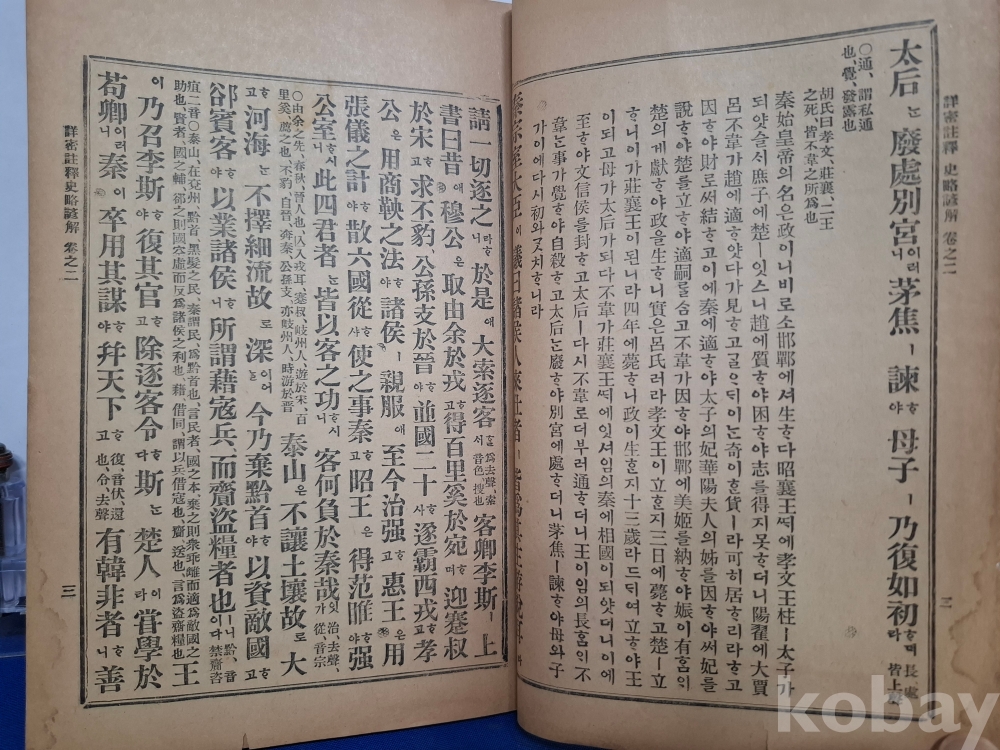 詳密註釋 史略諺解 卷之二
太后는 廢處別宮이러니 茅焦ㅣ 諫ᄒᆞ야 母子ㅣ 乃復如初ᄒᆞ
○通、謂私通
也、覺、發露也
胡氏曰孝文、莊襄、二王
之死、皆不韋之所爲也
秦始皇帝의名은政이니비로소邯鄲에셔生ᄒᆞ다昭襄王ᄯᅢ에孝文王柱ㅣ太子가
되얏슬시庶子에楚ㅣ잇스니趙에質ᄒᆞ야困ᄒᆞ야志를得지못ᄒᆞ더니陽翟에大賈
呂不韋가趙에適ᄒᆞ얏다가見ᄒᆞ고ᄀᆞᆯᄋᆞᄃᆡ이는奇이ᄒᆞᆫ貨ㅣ라可히居ᄒᆞ리라ᄒᆞ고
因ᄒᆞ야財로써結ᄒᆞ고이에秦에適ᄒᆞ야太子의妃華陽夫人의姊를因ᄒᆞ야써妃를
說ᄒᆞ야楚를立ᄒᆞ야適嗣를合고不韋가因ᄒᆞ야邯鄲에美姬를納ᄒᆞ야娠이有ᄒᆞᆷ의
楚의게獻ᄒᆞ야政을生ᄒᆞ니實은呂氏러라孝文王이立ᄒᆞᆫ지三日에薨ᄒᆞ고楚ㅣ立
ᄒᆞ니이가莊襄王이된니라四年에薨ᄒᆞ니政이生ᄒᆞᆫ지十三歲라드ᄃᆡ여立ᄒᆞ야王
이되고母가太后가되다不韋가莊襄王ᄯᅢ에잇셔임의秦에相國이되얏더니이에
至ᄒᆞ야文信侯를封ᄒᆞ고太后ㅣ다시不韋로더부러通ᄒᆞ더니王이임의長ᄒᆞᆷ의不
韋는事가覺ᄒᆞ야自殺ᄒᆞ고太后는廢ᄒᆞ야別宮에處ᄒᆞ더니茅焦ㅣ諫ᄒᆞ야母와子
가이에다시初와ᄀᆞᆺ치ᄒᆞ니라
請一切逐之라ᄒᆞ 於是애 大索逐客ᄒᆞᆯ서 客卿李斯ㅣ 上
書曰昔애 穆公은 取由余於戎ᄒᆞ고 得百里奚於宛ᄒᆞ며 迎蹇叔
於宋ᄒᆞ고 求丕豹、公孫支於晉ᄒᆞ야 並國二十ᄒᆞ사 遂霸西戎ᄒᆞ고 孝
公은 用商鞅之法ᄒᆞ야 諸侯ㅣ 親服애 至今治强ᄒᆞ고 惠王은 用
張儀之計ᄒᆞ야 散六國從ᄒᆞ샤 使之事秦ᄒᆞ고 昭王은 得范睢ᄒᆞ야 强
公室ᄒᆞ시니 此四君者는 皆以客之功ᄒᆞ시니 客何負於秦哉잇가 治、去聲、從、音宗
○由余之先、春秋、晉人也、
里奚、薦之也、丕豹、自晉、奔秦、公孫支、亦岐州人、時游於晉
泰山은 不讓土壤故로 大
ᄒᆞ고 河海는 不擇細流故로 深이어 今乃棄黔首ᄒᆞ야 以資敵國ᄒᆞ고
卻賓客ᄒᆞ야 以業諸侯ᄒᆞ니 所謂藉寇兵、而齎盜糧者也ㅣ니이다
○泰山、在兗州、黔首、黑髮之民、秦謂民、爲黔首也、言民者、國之本、棄之則衆乖離而適爲敵國之
助也、賢者、國之輔、卻之則國空虛而反爲諸侯之利也、藉、借同、謂以兵借寇也、齎、送也、言爲盜齎糧也
王
이 乃召李斯ᄒᆞ야 復其官ᄒᆞ고 除逐客令ᄒᆞ다 斯는 楚人이라 嘗學於
荀卿이러니 秦이 卒用其謀ᄒᆞ야 幷天下ᄒᆞ고 復、音伏、還也、令、去聲 有韓非者ᄒᆞ니 善
詳密註釋史略諺解 卷之二
三
kobay